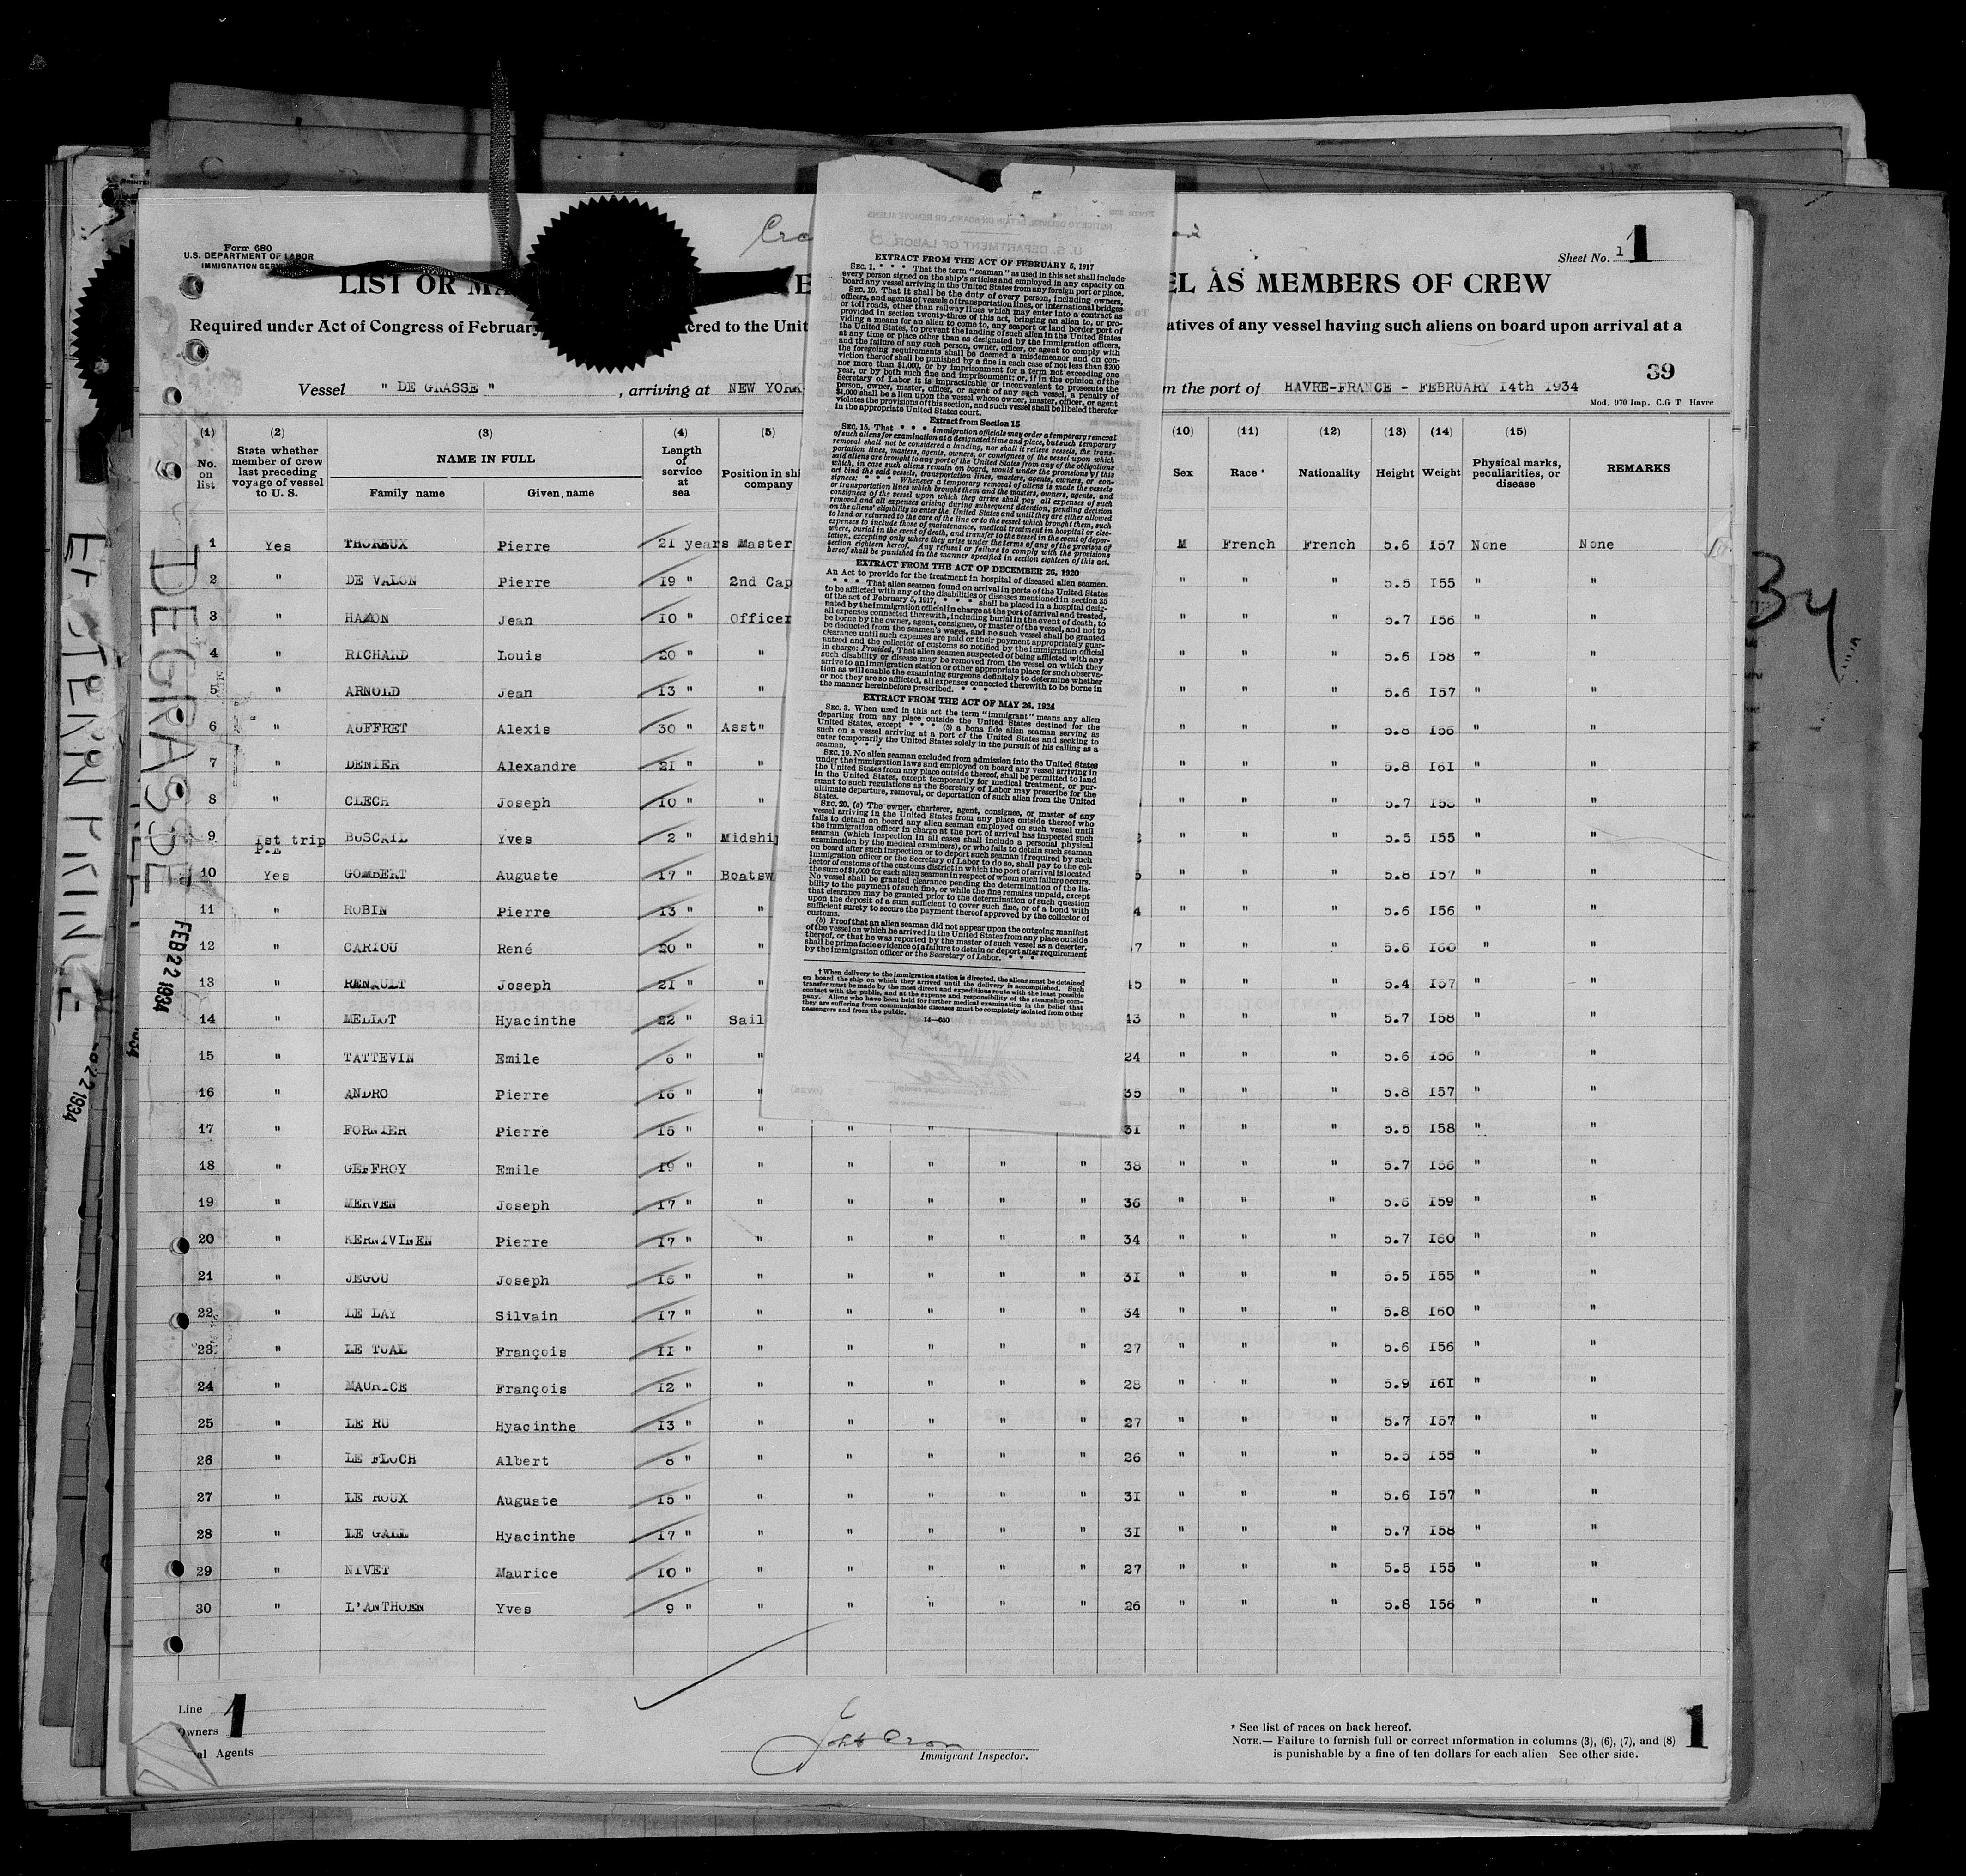 Form 680
U.S. DEPARTMENT OF LABOR
IMMIGRATION
Sheet No. 1
1
LIST OR
AS MEMBERS OF CREW
Required under Act of Congress of
atives of any vessel having such aliens on board upon arrival at a
39
Vessel " DE GRASSE " , arriving at NEW YORK
the port of HAVRE-FRANCE - FEBRUARY I4th I934
Mod. 970 Imp. C.G T Havre
(1) (2) (3) (4) (5) (10) (11) (12) (13) (14) (15)
No. on list
State whether member of crew last preceding voyage of vessel to U. S.
NAME IN FULL
Family name Given name
Length of service at sea
Position in company
Sex Race * Nationality Height Weight
Physical marks, peculiarities, or disease
REMARKS
1 Yes THOREUX Pierre 2I years Master M French French 5.6 I57 None None
2 " DE VALON Pierre I9 " 2nd Cap " " " 5.5 I55 " "
3 " Jean I0 " Officer " " " 5.7 I56 " "
4 " RICHARD Louis 20 " " " " " 5.6 I58 " "
5 " ARNOLD Jean I3 " " " " " 5.6 I57 " "
6 " AUFFRET Alexis 30 " Asst" " " " 5.8 I56 " "
7 " DENIER Alexandre 2I " " " " " 5.8 I6I " "
8 " CLECH Joseph I0 " " " " " 5.7 " "
9 1st trip BUSCAIL Yves 2 " " " " 5.5 I55 " "
P.E
10 Yes GOMBERT Auguste I7 " Boatsw " " " 5.8 I57 " "
11 " ROBIN Pierre I3 " " 4 " " " 5.6 I56 " "
12 " CARIOU René 20 " " 7 " " " 5.6 I60 " "
13 " RENAULT Joseph 2I " " 45 " " " 5.4 I57 " "
14 " MELLOT Hyacinthe 22 " Sail 43 " " " 5.7 I58 " "
15 " TATTEVIN Emile " " 24 " " " 5.6 I56 " "
16 " ANDRO Pierre I6 " " 35 " " " 5.8 I57 " "
17 " FORNIER Pierre I5 " " " " 3I " " " 5.5 I58 " "
18 " GEFFROY Emile I9 " " " " " " 38 " " " 5.7 I56 " "
19 " MERVEN Joseph I7 " " " " " " 36 " " " 5.6 I59 " "
20 " KERNIVINEN Pierre I7 " " " " " " 34 " " " 5.7 I60 " "
21 " JEGOU Joseph " " " " " " 3I " " " 5.5 I55 " "
22 " LE LAY Silvain I7 " " " " " " 34 " " " 5.8 I60 " "
23 " LE TUAL François II " " " " " " 27 " " " 5.6 I56 " "
24 " MAURICE François I2 " " " " " " 28 " " " 5.9 I6I " "
25 " LE RU Hyacinthe I3 " " " " " " 27 " " " 5.7 I57 " "
26 " LE FLOCH Albert 8 " " " " " " 26 " " " 5.5 I55 " "
27 " LE ROUX Auguste I5 " " " " " " 3I " " " 5.6 I57 " "
28 " LE GALL Hyacinthe I7 " " " " " " 3I " " " 5.7 I58 " "
29 " NIVET Maurice I0 " " " " " " 27 " " " 5.5 I55 " "
30 " L'ANTHOEN Yves 9 " " " " " " 26 " " " 5.8 I56 " "
Line 1
Owners
Agents
Immigrant Inspector.
* See list of races on back hereof.
NOTE.— Failure to furnish full or correct information in columns (3), (6), (7), and (8)
is punishable by a fine of ten dollars for each alien See other side.
1
EXTRACT FROM THE ACT OF FEBRUARY 5, 1917
SEC. 1. * * * That the term "seaman" as used in this act shall include
every person signed on the ship's articles and employed in any capacity on
board any vessel arriving in the United States from any foreign port or place.
SEC. 10. That it shall be the duty of every person, including owners,
officers, and agents of vessels of transportation lines, or international bridges
or toll roads, other than railway lines which may enter into a contract as
provided in section twenty-three of this act, bringing an alien to, or pro-
viding a means for an alien to come to, any seaport or land border port of
the United States, to prevent the landing of such alien in the United States
at any time or place other than as designated by the immigration officers,
and the failure of any such person, owner, officer, or agent to comply with
the foregoing requirements shall be deemed a misdemeanor and on con-
viction thereof shall be punished by a fine in each case of not less than $200
nor more than $1,000, or by imprisonment for a term not exceeding one
year, or by both such fine and imprisonment; or, if in the opinion of the
Secretary of Labor it is impracticable or inconvenient to prosecute the
person, owner, master, officer, or agent of any such vessel, a penalty of
$1,000 shall be a lien upon the vessel whose owner, master, officer, or agent
violates the provisions of this section, and such vessel shall be libeled therefor
in the appropriate United States court.
Extract from Section 15
SEC. 15. That * * * immigration officials may order a temporary removal
of such aliens for examination at a designated time and place, but such temporary
removal shall not be considered a landing, nor shall it relieve vessels, the trans-
portation lines, masters, agents, owners, or consignees of the vessel upon which
said aliens are brought to any port of the United States from any of the obligations
which, in case such aliens remain on board, would under the provisions of this
act bind the said vessels, transportation lines, masters, agents, owners, or con-
signees: * * * Whenever a temporary removal of aliens is made the vessels
or transportation lines which brought them and the masters, owners, agents, and
consignees of the vessel upon which they arrive shall pay all expenses of such
removal and all expenses arising during subsequent detention, pending decision
on the aliens' eligibility to enter the United States and until they are either allowed
to land or returned to the care of the line or to the vessel which brought them, such
expenses to include those of maintenance, medical treatment in hospital or else-
where, burial in the event of death, and transfer to the vessel in the event of depor-
tation, excepting only where they arise under the terms of any of the provisos of
section eighteen hereof. Any refusal or failure to comply with the provisions
hereof shall be punished in the manner specified in section eighteen of this act.
EXTRACT FROM THE ACT OF DECEMBER 26, 1920
An Act to provide for the treatment in hospital of diseased alien seamen.
* * * That alien seamen found on arrival in ports of the United States
to be afflicted with any of the disabilities or diseases mentioned in section 35
of the act of February 5, 1917, * * * shall be placed in a hospital desig-
nated by the immigration official in charge at the port of arrival and treated,
all expenses connected therewith, including burial in the event of death, to
be borne by the owner, agent, consignee, or master of the vessel, and not to
be deducted from the seamen's wages, and no such vessel shall be granted
clearance until such expenses are paid or their payment appropriately guar-
anteed and the collector of customs so notified by the immigration official
in charge: Provided, That alien seamen suspected of being afflicted with any
such disability or disease may be removed from the vessel on which they
arrive to an immigration station or other appropriate place for such observa-
tion as will enable the examining surgeons definitely to determine whether
or not they are so afflicted, all expenses connected therewith to be borne in
the manner hereinbefore prescribed. * * *
EXTRACT FROM THE ACT OF MAY 26, 1924
SEC. 3. When used in this act the term "immigrant" means any alien
departing from any place outside the United States destined for the
United States, except * * * (5) a bona fide alien seaman serving as
such on a vessel arriving at a port of the United States and seeking to
enter temporarily the United States solely in the pursuit of his calling as a
seaman. * * *
SEC. 19. No alien seaman excluded from admission into the United States
under the immigration laws and employed on board any vessel arriving in
the United States from any place outside thereof, shall be permitted to land
in the United States, except temporarily for medical treatment, or pur-
suant to such regulations as the Secretary of Labor may prescribe for the
ultimate departure, removal, or deportation of such alien from the United
States.
SEC. 20. (a) The owner, charterer, agent, consignee, or master of any
vessel arriving in the United States from any place outside thereof who
fails to detain on board any alien seaman employed on such vessel until
the immigration officer in charge at the port of arrival has inspected such
seaman (which inspection in all cases shall include a personal physical
examination by the medical examiners), or who fails to detain such seaman
on board after such inspection or to deport such seaman if required by such
immigration officer or the Secretary of Labor to do so, shall pay to the col-
lector of customs of the customs district in which the port of arrival is located
the sum of $1,000 for each alien seaman in respect of whom such failure occurs.
No vessel shall be granted clearance pending the determination of the lia-
bility to the payment of such fine, or while the fine remains unpaid, except
that clearance may be granted prior to the determination of such question
upon the deposit of a sum sufficient to cover such fine, or of a bond with
sufficient surety to secure the payment thereof approved by the collector of
customs.
(b) Proof that an alien seaman did not appear upon the outgoing manifest
of the vessel on which he arrived in the United States from any place outside
thereof, or that he was reported by the master of such vessel as a deserter,
shall be prima facie evidence of a failure to detain or deport after requirement
by the immigration officer or the Secretary of Labor. * * *
† When delivery to the immigration station is directed, the aliens must be detained
on board the ship on which they arrived until the delivery is accomplished. Such
transfer must be made by the most direct and expeditious route with the least possible
contact with the public, and at the expense and responsibility of the steamship com-
pany. Aliens who have been held for further medical examination in the belief that
they are suffering from communicable diseases must be completely isolated from other
passengers and from the public.
14—650
DEGRASSE
FEB 22 1934
34